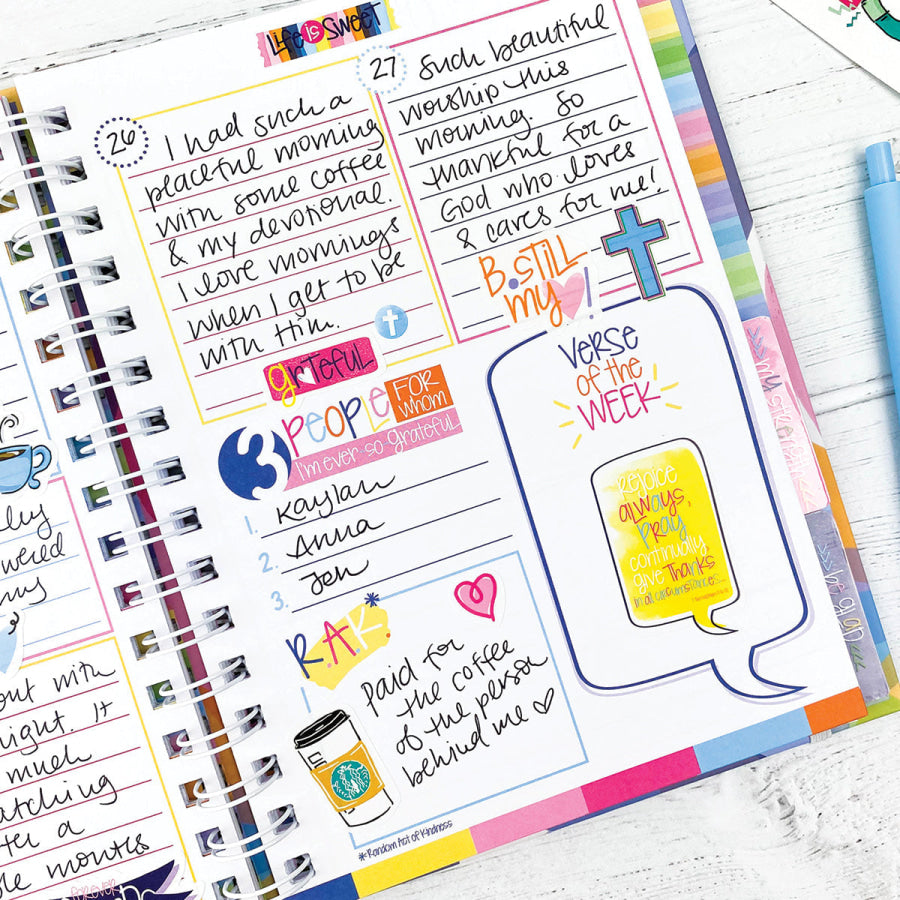 Life is Sweet
26
I had such a
peaceful morning
with some coffee
& my devotional.
I love mornings
when I get to be
with Him.
grateful
27
Such beautiful
worship this
morning. So
thankful for a
God who loves
& cares for me!
B.STILL
my !
3 PEOPLE FOR WHOM
I'm ever so grateful
1. Kaylan
2. Anna
3. Jen
R.A.K.*
Paid for
the coffee
of the person
behind me
*Random Act of Kindness
VERSE
OF THE
WEEK
Rejoice
always,
pray
continually
give thanks
in all circumstances...
out with
night. It
much
atching
a
months
FOREVER